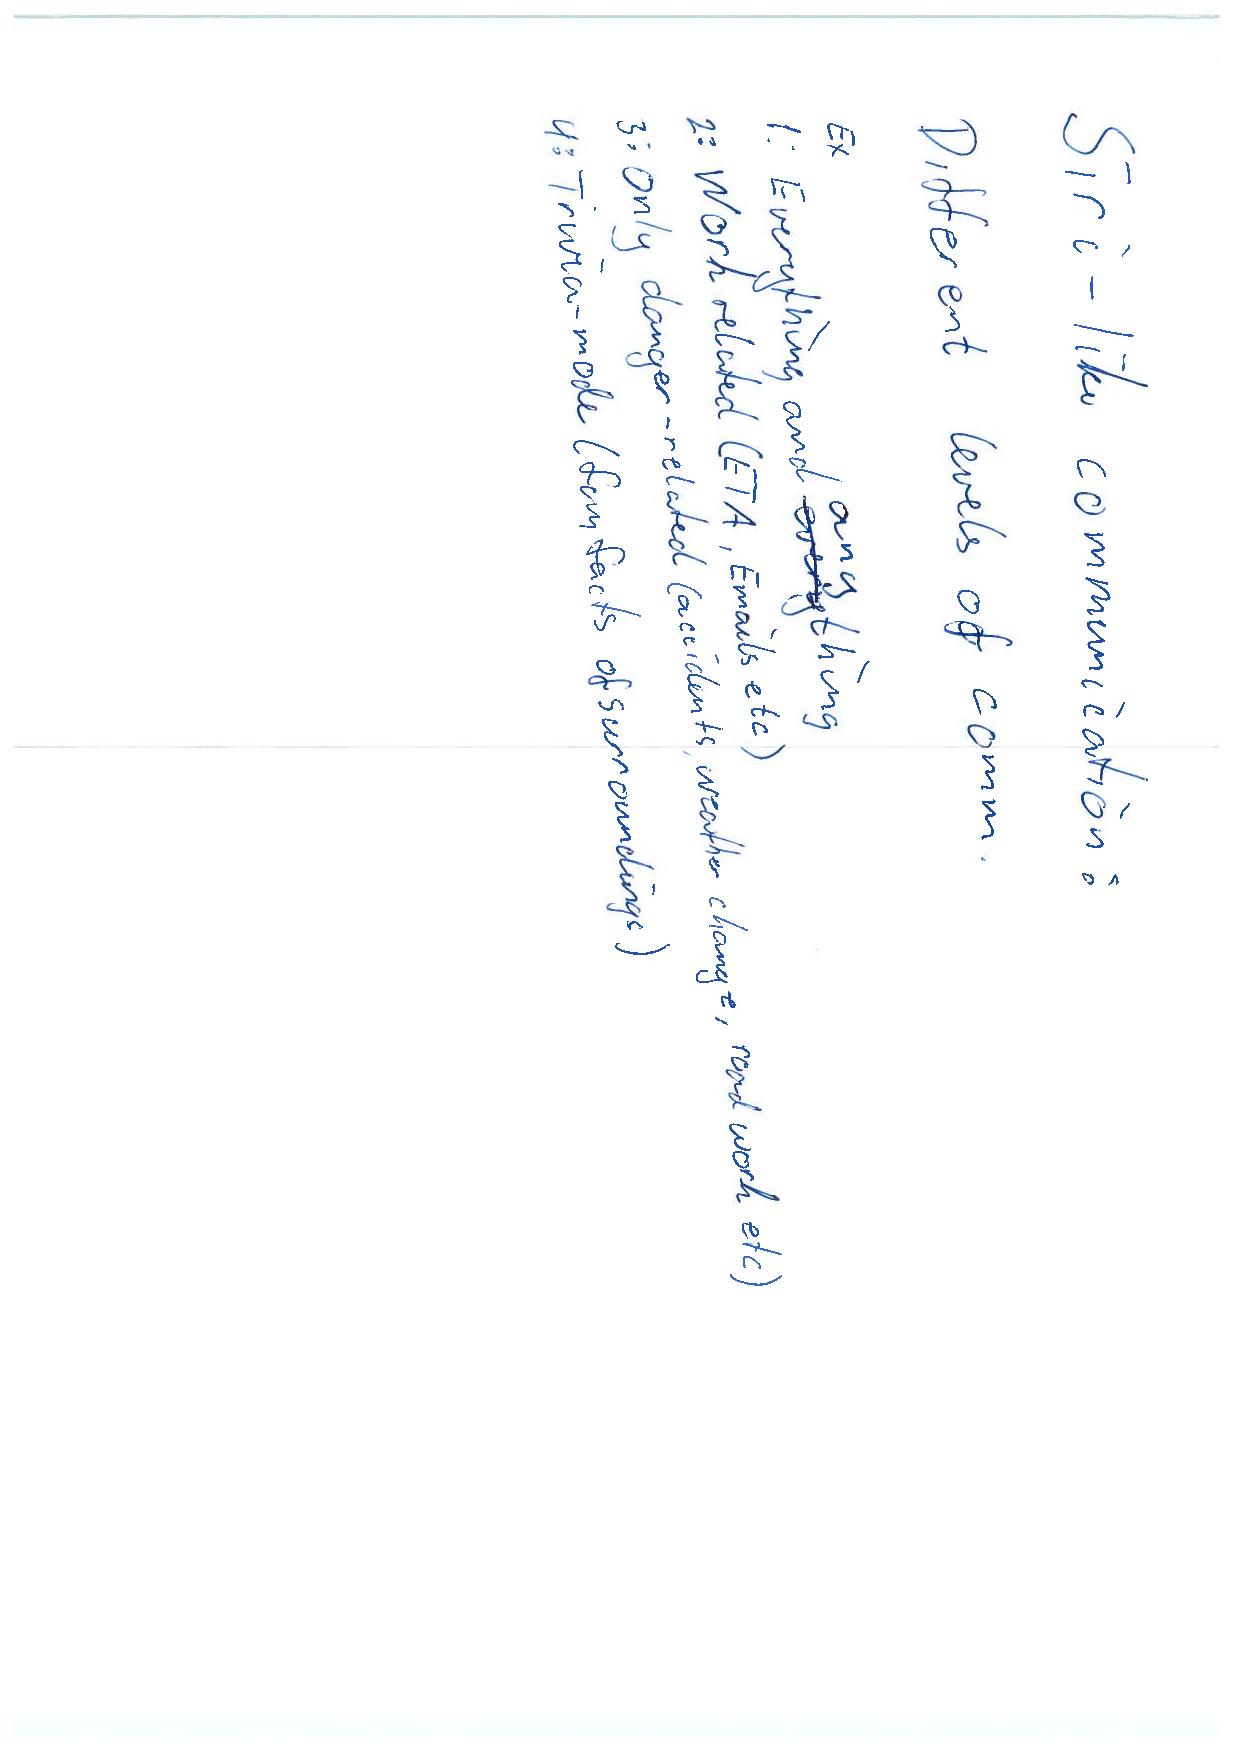 Siri-like communication:
Different levels of comm.
Ex
1: Everything and anything
2: Work related (ETA, Emails etc)
3: Only danger-related (accidents, weather change, road work etc)
4: Trivia-mode (fun facts of surroundings)